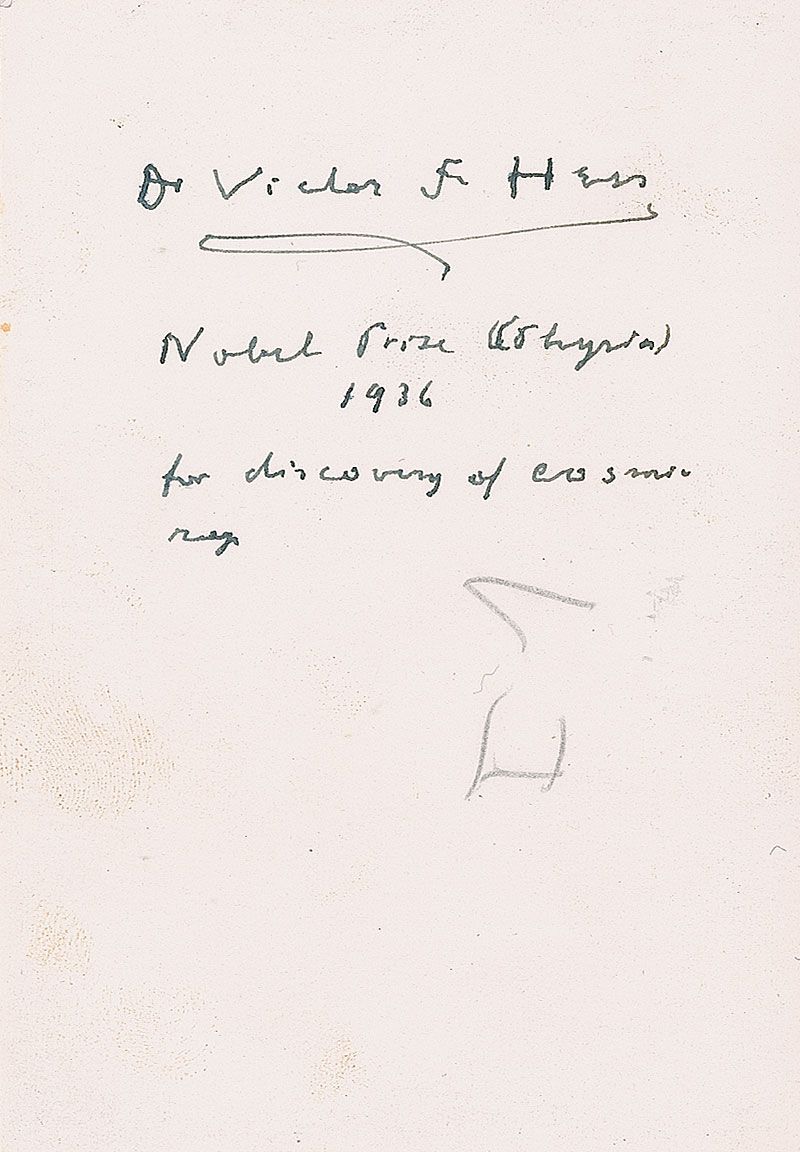 Dr Victor F. Hess
Nobel Prize (Physics)
1936
for discovery of cosmic
rays